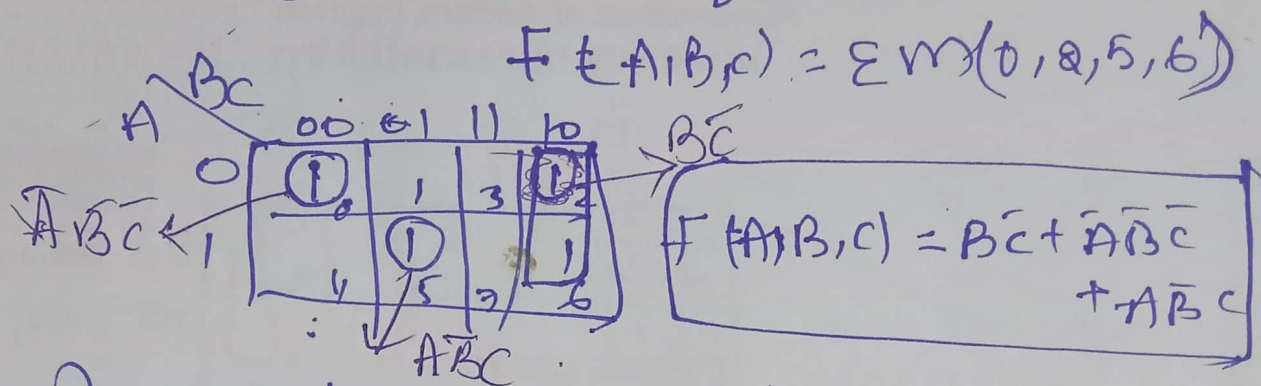 F(A,B,C) = Σm(0,2,5,6)
A BC
00 01 11 10
0 1 0 1 3 1 2
B̅C̅
1 4 1 5 7 1 6
A̅B̅C̅
AB̅C
F(A,B,C) = BC̅ + A̅B̅C̅
+ AB̅C